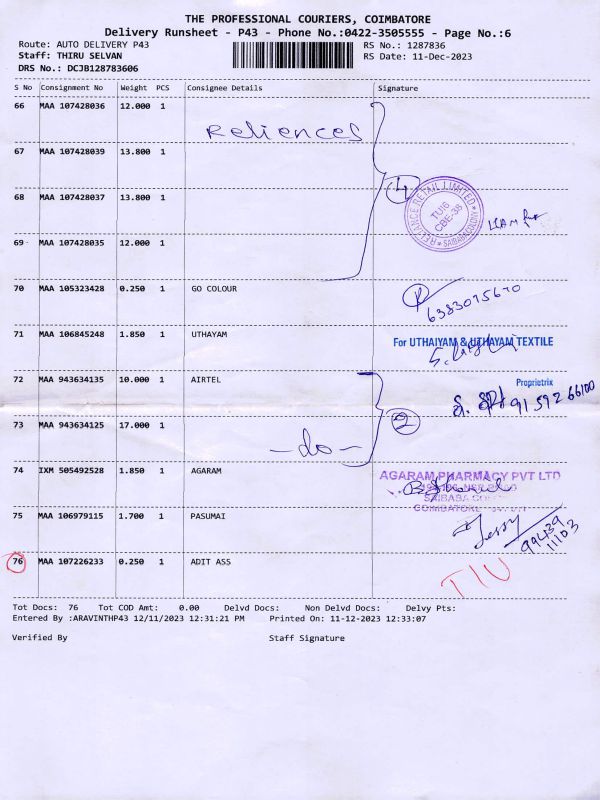 THE PROFESSIONAL COURIERS, COIMBATORE
Delivery Runsheet - P43 - Phone No.:0422-3505555 - Page No.:6
Route: AUTO DELIVERY P43 RS No.: 1287836
Staff: THIRU SELVAN RS Date: 11-Dec-2023
DRS No.: DCJB128783606
S No Consignment No Weight PCS Consignee Details Signature
66 MAA 107428036 12.000 1
Reliences
67 MAA 107428039 13.800 1
4
RELIANCE RETAIL LIMITED
TUI6
CBE-38
SAIBABA COLONY
68 MAA 107428037 13.800 1
69 MAA 107428035 12.000 1
70 MAA 105323428 0.250 1 GO COLOUR
6383075670
71 MAA 106845248 1.850 1 UTHAYAM For UTHAIYAM & UTHAYAM TEXTILE
72 MAA 943634135 10.000 1 AIRTEL Proprietrix
91 592 66100
73 MAA 943634125 17.000 1 2
-do-
74 IXM 505492528 1.850 1 AGARAM AGARAM PHARMACY PVT LTD
SAIBABA
COIMBATORE
75 MAA 106979115 1.700 1 PASUMAI
Jessy
99439
11103
76 MAA 107226233 0.250 1 ADIT ASS
Tot Docs: 76 Tot COD Amt: 0.00 Delvd Docs: Non Delvd Docs: Delvy Pts:
Entered By :ARAVINTHP43 12/11/2023 12:31:21 PM Printed On: 11-12-2023 12:33:07
Verified By Staff Signature